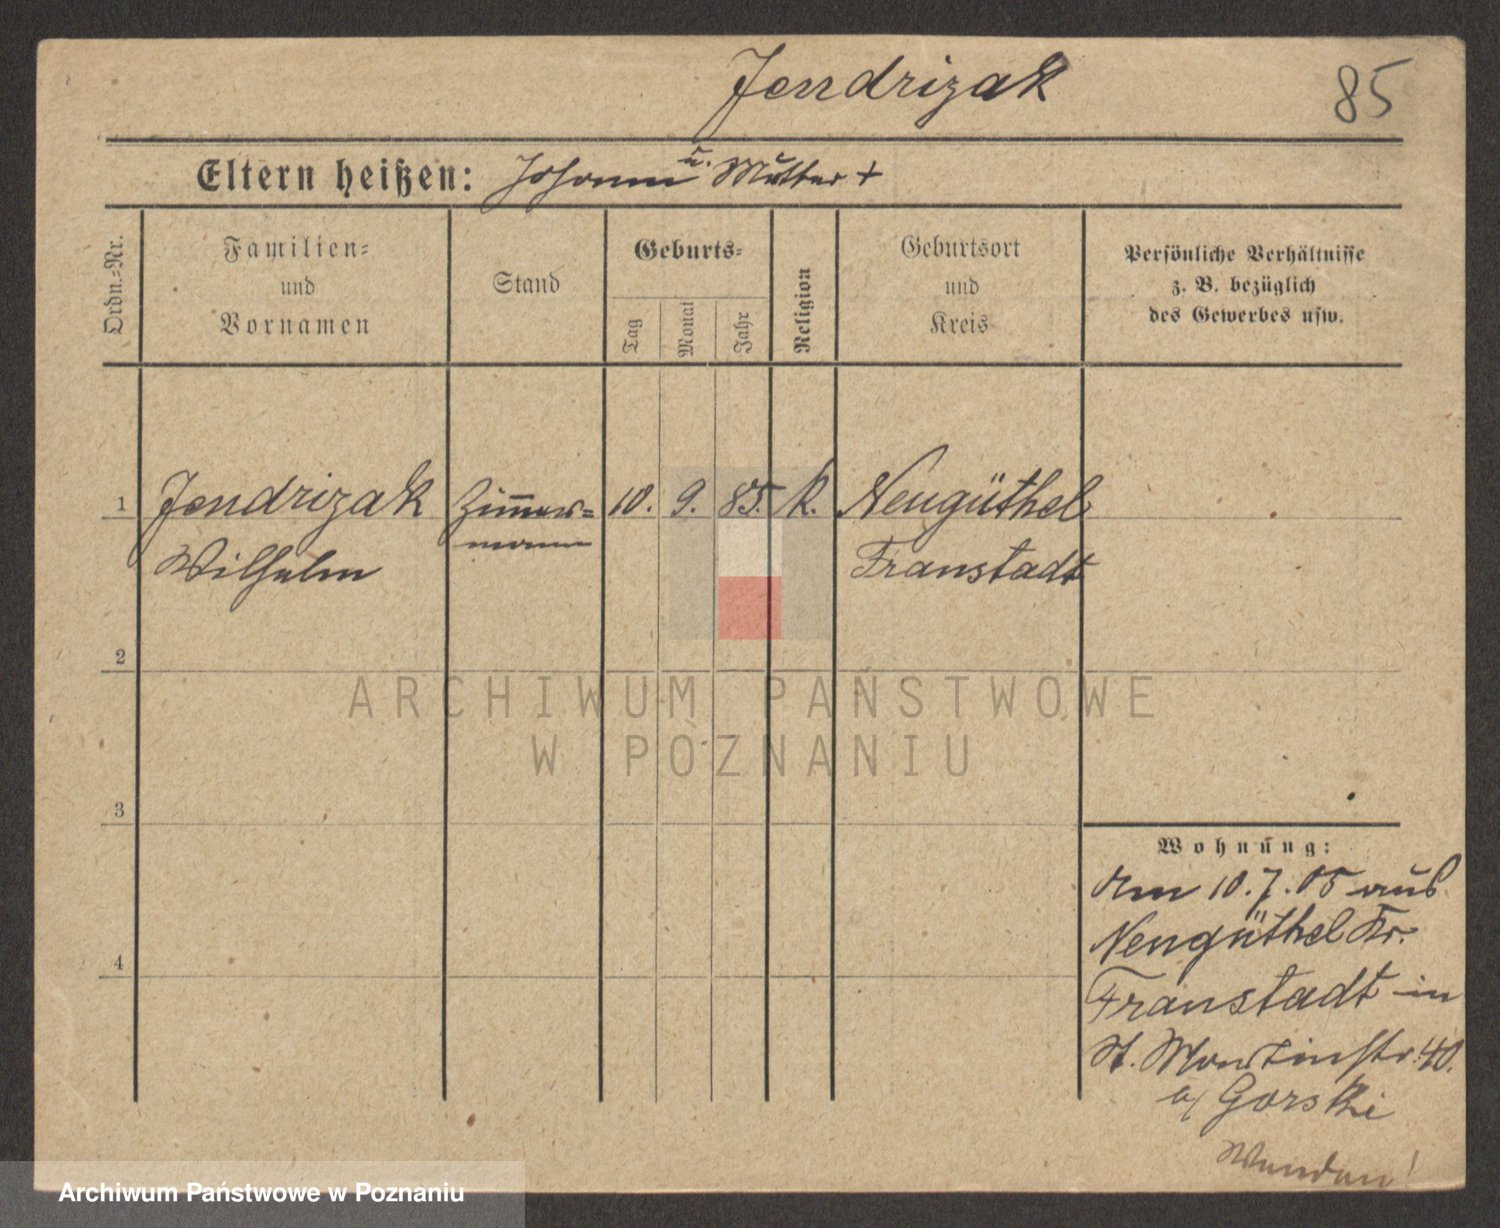 Jendrizak
85
Eltern heißen: Johann u. Mutter +
Ordn.-Nr.
Familien-
und
Vornamen
Stand
Geburts-
Tag
Monat
Jahr
Religion
Geburtsort
und
Kreis
Persönliche Verhältnisse
z. B. bezüglich
des Gewerbes usw.
1 Jendrizak Zimmer= 10. 9. 85. k. Neugüthel
Wilhelm mann Fraustadt
2
3
4
ARCHIWUM PAŃSTWOWE
W POZNANIU
Wohnung:
Am 10.7.05 aus
Neugüthel Kr.
Fraustadt in
St. Martinstr. 40.
b/ Gorski
Archiwum Państwowe w Poznaniu